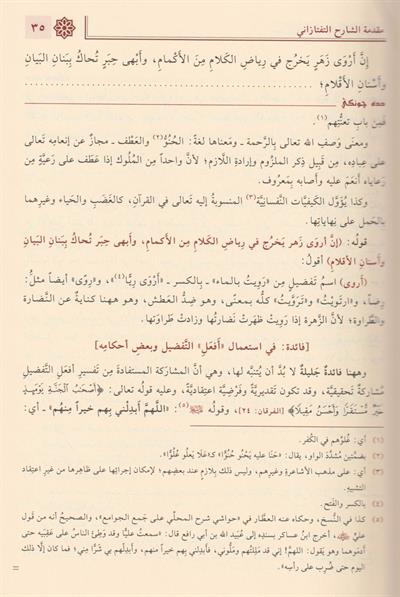 مقدمة الشارح التفتازاني
٣٥
إنَّ أَرْوَى زَهَرٍ يَخرُج في رِياضِ الكَلامِ مِنَ الأَكْمامِ، وَأَبْهى حِبَرٍ تُحاكُ بِبَنانِ البَيانِ
وأَسْنانِ الأَقْلامِ؛
حده جونكي
فَمِنْ بابِ تعنُّتِهم(١).
ومعنَى وَصفِ الله تعالى بِالرَّحمة ـ ومَعناها لغةً: الحُنُوُّ(٢) والعَطف ـ مجازٌ عن إنعامِه تَعالى
على عِبادِه، مِن قَبِيل ذِكرِ الملزُوم وإرادةِ اللَّازم؛ لأنَّ واحداً مِن المُلوك إذا عَطَف على رَعِيَّةٍ مِن
رَعاياه أَنعَمَ عليه وأَصابه بِمَعروف.
وكذا يُؤَوَّل الكَيفيَّات النَّفسانِيَّة(٣) المَنسوبة إليه تَعالى في القُرآن، كالغَضَب والحَياء وغَيرِهما
بالحَمل على نِهاياتِها.
قولُه: (إنَّ أروَى زَهر يَخرُج في رِياضِ الكَلامِ مِن الأكمام، وأبهى حِبَر تُحاكُ بِبَنانِ البَيانِ
وأَسنانِ الأقلامِ) أقولُ:
(أروى) اسمُ تَفضِيلٍ مِن «رَوِيتُ بالماء» ـ بِالكسر ـ «أَرْوَى رِيًّا»(٤)، و«رِوًى» أيضاً مثلُ:
رِضاً، و«ارتَويْتُ» و«تَرَوَّيتُ» كلُّه بمعنًى، وهو ضِدُّ العَطش، وهو ههُنا كنايةٌ عن النَّضارة
والطَّراوة؛ لأنَّ الزَّهرة إذا رَوِيَتْ ظَهَرَتْ نَضارتُها وزادَتْ طَراوَتُها.
[فائدة: في استعمال «أَفعَلِ» التَّفضيل وبعض أحكامِه]
وههنا فائدةٌ جَليلةٌ لا بُدَّ أن يُتنبَّه لها، وهي أنَّ المشارَكة المستفادَة مِن تَفسيرِ أفعَلِ التَّفضيل
مُشارَكة تَحقيقيَّة، وقد تكون تَقديريَّةً وفَرْضيَّة اعتِقاديَّةً، وعليه قولُه تعالى: ﴿أَصْحَٰبُ ٱلْجَنَّةِ يَوْمَئِذٍ
خَيْرٌ مُّسْتَقَرًّا وَأَحْسَنُ مَقِيلًا﴾ [الفرقان: ٢٤]، وقولُه ﷺ(٥): «اللَّهمَّ أَبدِلْني بِهم خيراً منهُم»، أي:
(١) أي: غُلوِّهم في الكُفر.
(٢) بضمَّتَين مُشدَّدَ الواو، يقال: «حَنَا عليه يَحنُو حُنُوًّا» كـ«عَلا يَعلُو عُلُوًّا».
(٣) أي: على مذهب الأشاعرة وغيرهم، وليس ذلك بِلازم عند بعضِهم؛ لإمكان إجرائِها على ظاهِرِها من غيرِ اعتِقادِ
التشبيه.
(٤) بالكسر والفَتح.
(٥) كذا في النُّسَخ، وحكاه عنه العطَّار في «حواشي شرح المحلّي على جَمع الجوامع»، والصحيح أنه من قول
عليٍّ ﵁، أخرَج ابنُ عساكر بسنده إلى عُبَيد الله بن أبي رافع قال: «سمعتُ عليًّا وقد وَطِئ الناسُ على عَقِبَيه حتى
أَدمَوهما وهو يَقول: اللهمَّ! إني قد مَلِلتُهم ومَلُّوني، فأَبدِلني بِهم خيراً منهم، وأَبدِلهم بي شَرًّا مِني؛ فما كان إلَّا ذلك
اليوم حتى ضُرِب على رأسِه».
=